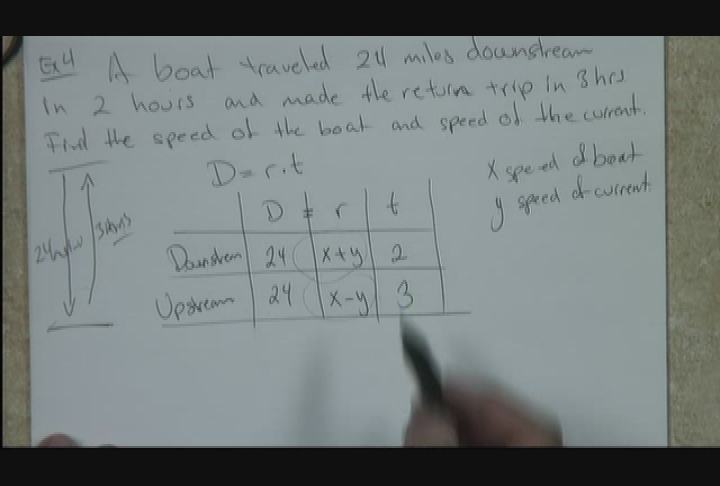 Ex4 A boat traveled 24 miles downstream
in 2 hours and made the return trip in 3 hrs
Find the speed of the boat and speed of the current.
D = r.t
x speed of boat
y speed of current
D = r t
Downstream 24 x+y 2
Upstream 24 x-y 3
3hrs